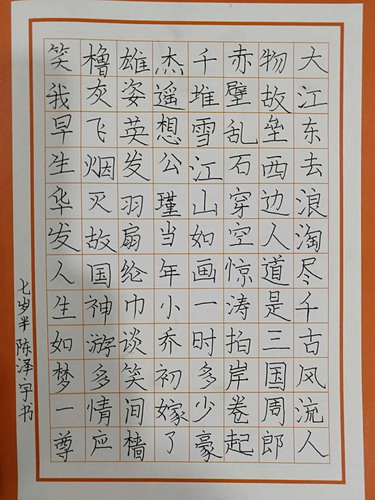 大江东去浪淘尽千古风流人
物故垒西边人道是三国周郎
赤壁乱石穿空惊涛拍岸卷起
千堆雪江山如画一时多少豪
杰遥想公瑾当年小乔初嫁了
雄姿英发羽扇纶巾谈笑间樯
橹灰飞烟灭故国神游多情应
笑我早生华发人生如梦一尊
七岁半 陈泽宇书